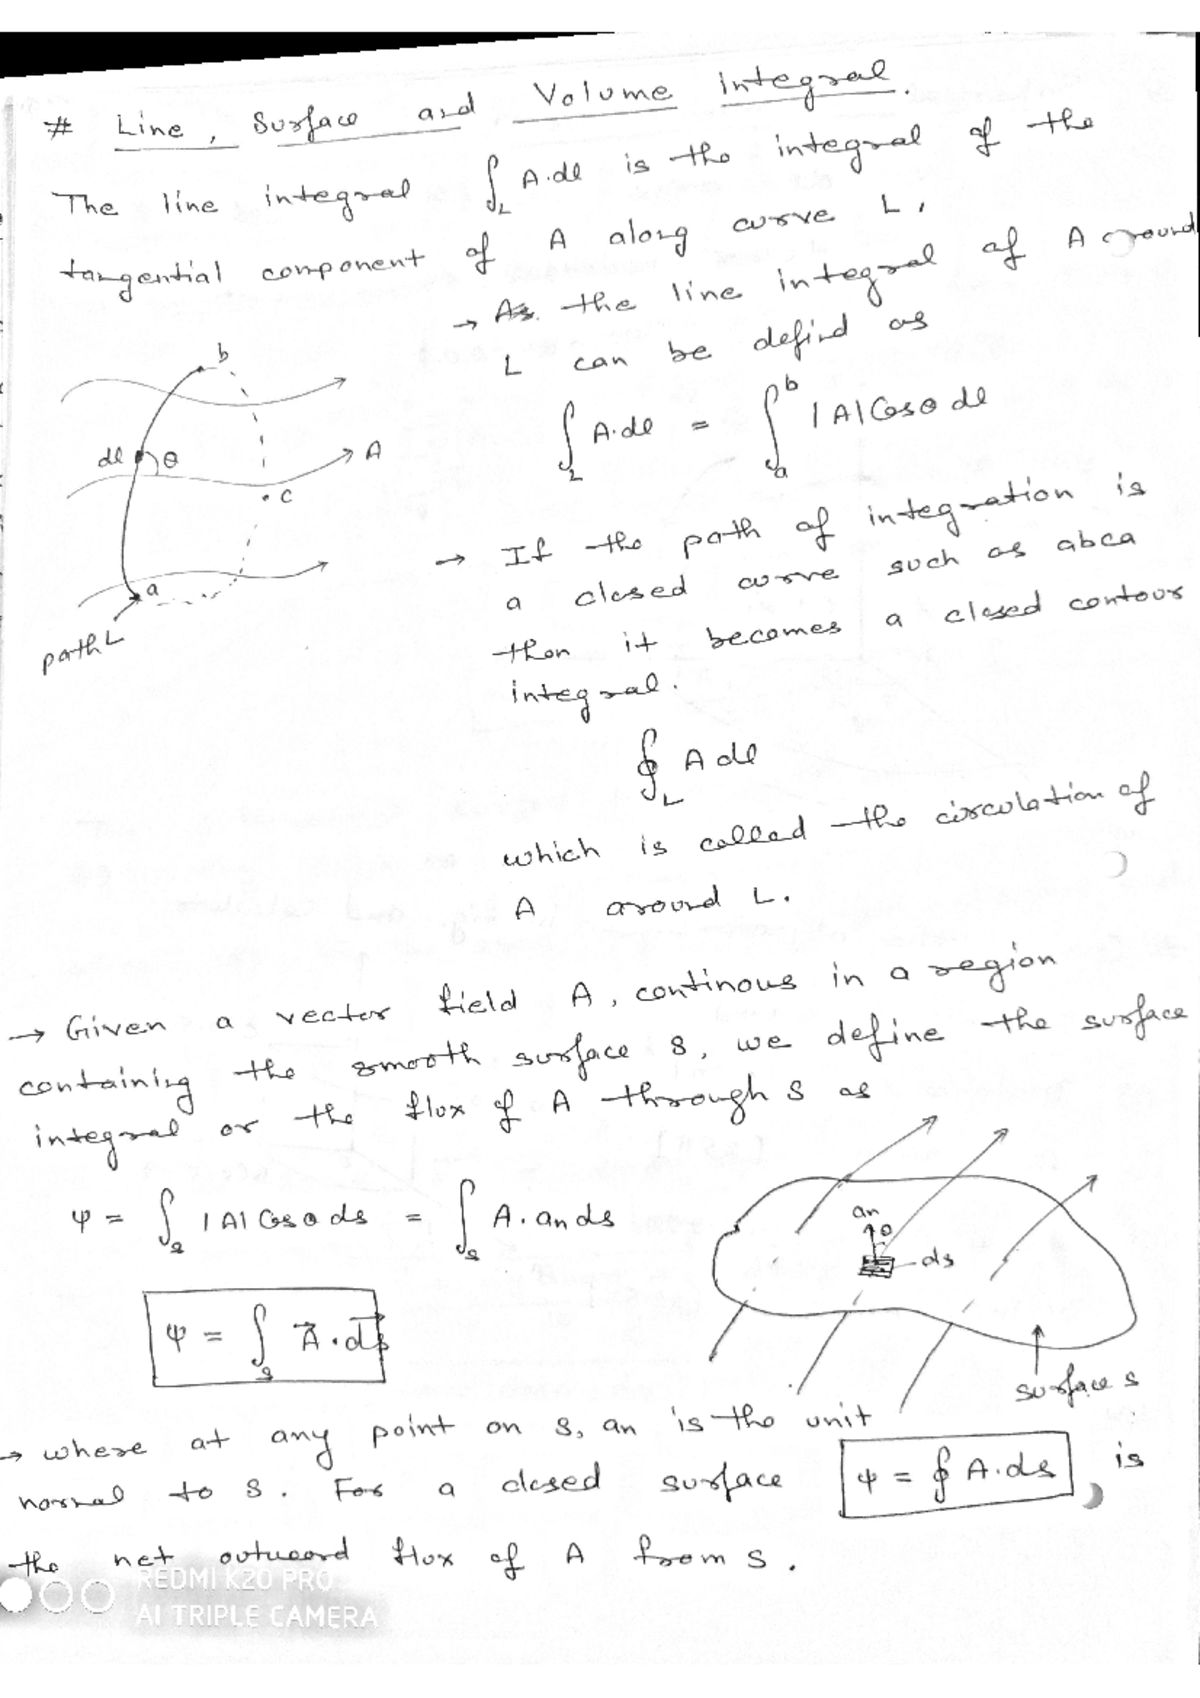 # Line, Surface and Volume integral.
The line integral ∫L A.dl is the integral of the
tangential component of A along curve L,
→ As the line integral of A around
L can be defind as
b
dl θ
A
c
a
path L
∫L A.dl = ∫a^b |A| Cosθ dl
→ If the path of integration is
a closed curve such as abca
then it becomes a closed contour
integral.
∮L A dl
which is called the circulation of
A around L.
→ Given a vector field A, continous in a region
containing the smooth surface S, we define the surface
integral or the flux of A through S as
ψ = ∫s |A| Cosθ ds = ∫s A. an ds
an
θ
ds
surface s
ψ = ∫s A⃗ . ds⃗
→ where at any point on S, an is the unit
normal to S. For a closed surface ψ = ∮ A.ds, is
the net outward flux of A from S.
REDMI K20 PRO
AI TRIPLE CAMERA